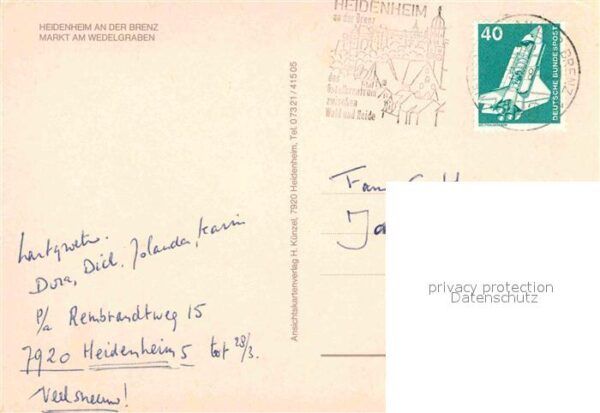 HEIDENHEIM AN DER BRENZ
MARKT AM WEDELGRABEN
HEIDENHEIM
an der Brenz
das
zwischen
Wald und Heide
40
DEUTSCHE BUNDESPOST
BRENZ
Ansichtskartenverlag H. Künzel, 7920 Heidenheim, Tel. 07321/41505
Fam.
Dora, Dick, Jolanda, Karin
p/a Rembrandtweg 15
7920 Heidenheim 5 tot 28/3.
Veel sneeuw!
privacy protection
Datenschutz